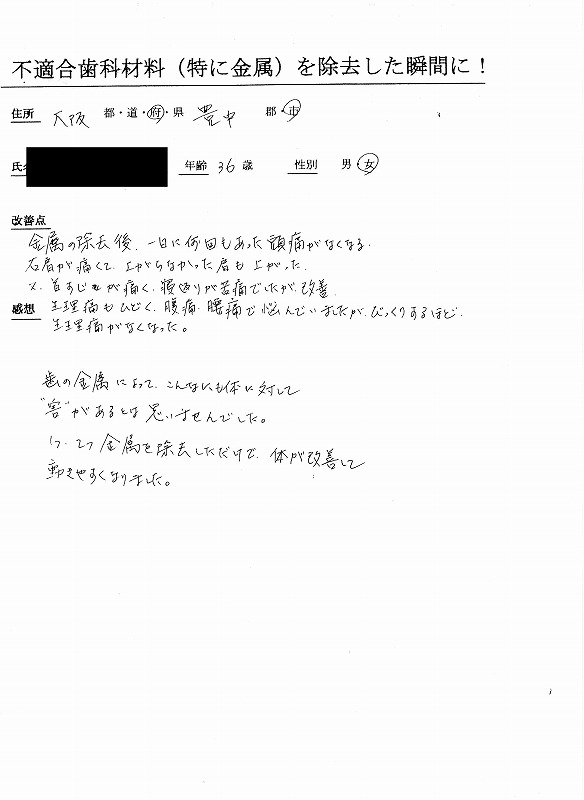 不適合歯科材料（特に金属）を除去した瞬間に！
住所 大阪 都・道・府・県 豊中 郡・市
氏 年齢 36 歳 性別 男・女
改善点
金属の除去後、一日に何回もあった頭痛がなくなる。
右肩が痛くて、上がらなかった肩も上がった。
又、首すじもが痛く、寝返りが苦痛でしたが、改善。
感想 生理痛もひどく、腹痛、腰痛で悩んでいましたが、びっくりするほど、
生理痛がなくなった。
歯の金属によって、こんなにも体に対して
"害"があるとは思いませんでした。
1つ、2つ金属を除去しただけで、体が改善して
動きやすくなりました。